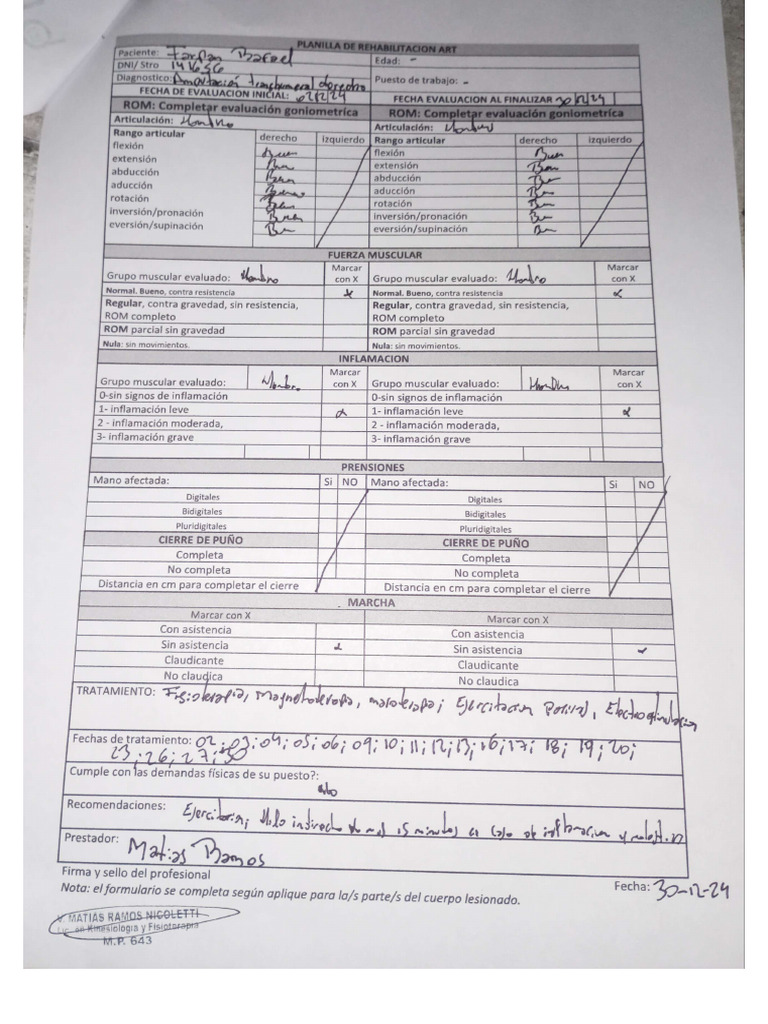 PLANILLA DE REHABILITACION ART
Paciente: Farfan Rafael Edad: -
DNI/ Stro 141656
Diagnostico: Amputación transhumeral derecho Puesto de trabajo: -
FECHA DE EVALUACION INICIAL: 02/12/24 FECHA EVALUACION AL FINALIZAR 30/12/24
ROM: Completar evaluación goniometrica ROM: Completar evaluación goniometrica
Articulación: Hombro Articulación: Hombro
Rango articular derecho izquierdo Rango articular derecho izquierdo
flexión Buen flexión Buen
extensión Buen extensión Buen
abducción Buen abducción Buen
aducción Bueno aducción Buen
rotación Buen rotación Buen
inversión/pronación Buen inversión/pronación Buen
eversión/supinación Buen eversión/supinación Buen
FUERZA MUSCULAR
Grupo muscular evaluado: Hombro Marcar con X Grupo muscular evaluado: Hombro Marcar con X
Normal. Bueno, contra resistencia x Normal. Bueno, contra resistencia x
Regular, contra gravedad, sin resistencia, ROM completo Regular, contra gravedad, sin resistencia, ROM completo
ROM parcial sin gravedad ROM parcial sin gravedad
Nula: sin movimientos. Nula: sin movimientos.
INFLAMACION
Grupo muscular evaluado: Hombro Marcar con X Grupo muscular evaluado: Hombro Marcar con X
0-sin signos de inflamación 0-sin signos de inflamación
1- inflamación leve x 1- inflamación leve x
2 - inflamación moderada, 2 - inflamación moderada,
3- inflamación grave 3- inflamación grave
PRENSIONES
Mano afectada: Si NO Mano afectada: Si NO
Digitales Digitales
Bidigitales Bidigitales
Pluridigitales Pluridigitales
CIERRE DE PUÑO CIERRE DE PUÑO
Completa Completa
No completa No completa
Distancia en cm para completar el cierre Distancia en cm para completar el cierre
. MARCHA
Marcar con X Marcar con X
Con asistencia Con asistencia
Sin asistencia x Sin asistencia x
Claudicante Claudicante
No claudica No claudica
TRATAMIENTO: Fisioterapia, Magnetoterapia, masoterapia; Ejercitacion, Electroestimulacion
Fechas de tratamiento: 02; 03; 04; 05; 06; 09; 10; 11; 12; 13; 16; 17; 18; 19; 20;
23; 26; 27; 30
Cumple con las demandas físicas de su puesto?:
No
Recomendaciones: Ejercitacion, Hielo indirecto 15 minutos en caso de inflamacion y molestia
Prestador: Matias Ramos
Firma y sello del profesional Fecha: 30-12-24
Nota: el formulario se completa según aplique para la/s parte/s del cuerpo lesionado.
MATIAS RAMOS NICOLETTI
Lic. en Kinesiología y Fisioterapia
M.P. 643